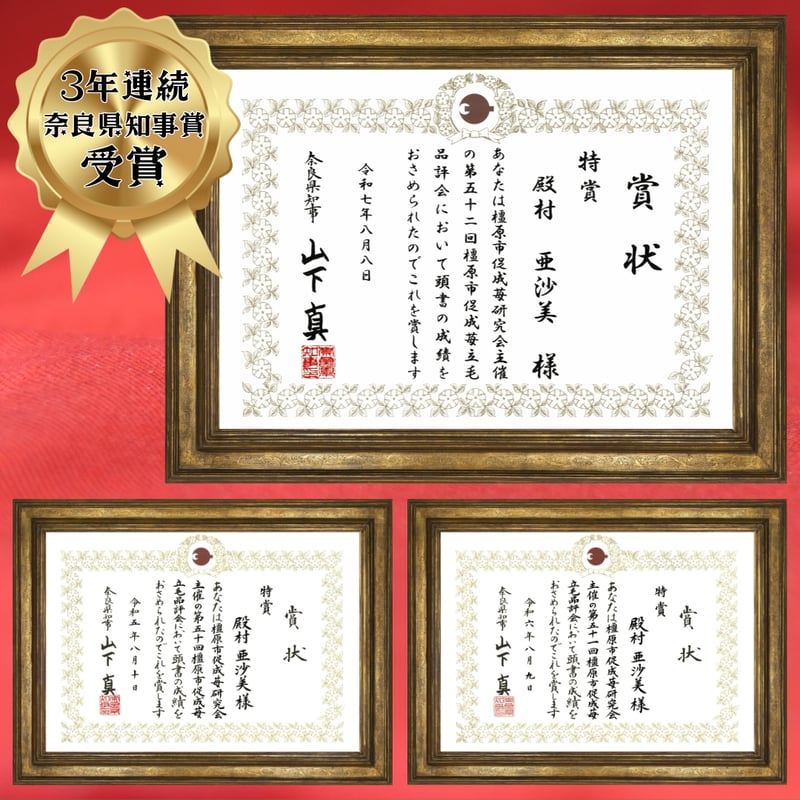 3年連続
奈良県知事賞
受賞
賞状
特賞
殿村 亜沙美 様
あなたは橿原市促成苺研究会主催
の第五十二回橿原市促成苺立毛
品評会において頭書の成績を
おさめられたのでこれを賞します
令和七年八月八日
奈良県知事 山下 真
賞状
特賞
殿村 亜沙美 様
あなたは橿原市促成苺研究会
主催の第五十回橿原市促成苺
立毛品評会において頭書の成績を
おさめられたのでこれを賞します
令和五年八月十日
奈良県知事 山下 真
賞状
特賞
殿村 亜沙美 様
あなたは橿原市促成苺研究会
主催の第五十一回橿原市促成苺
立毛品評会において頭書の成績を
おさめられたのでこれを賞します
令和六年八月九日
奈良県知事 山下 真